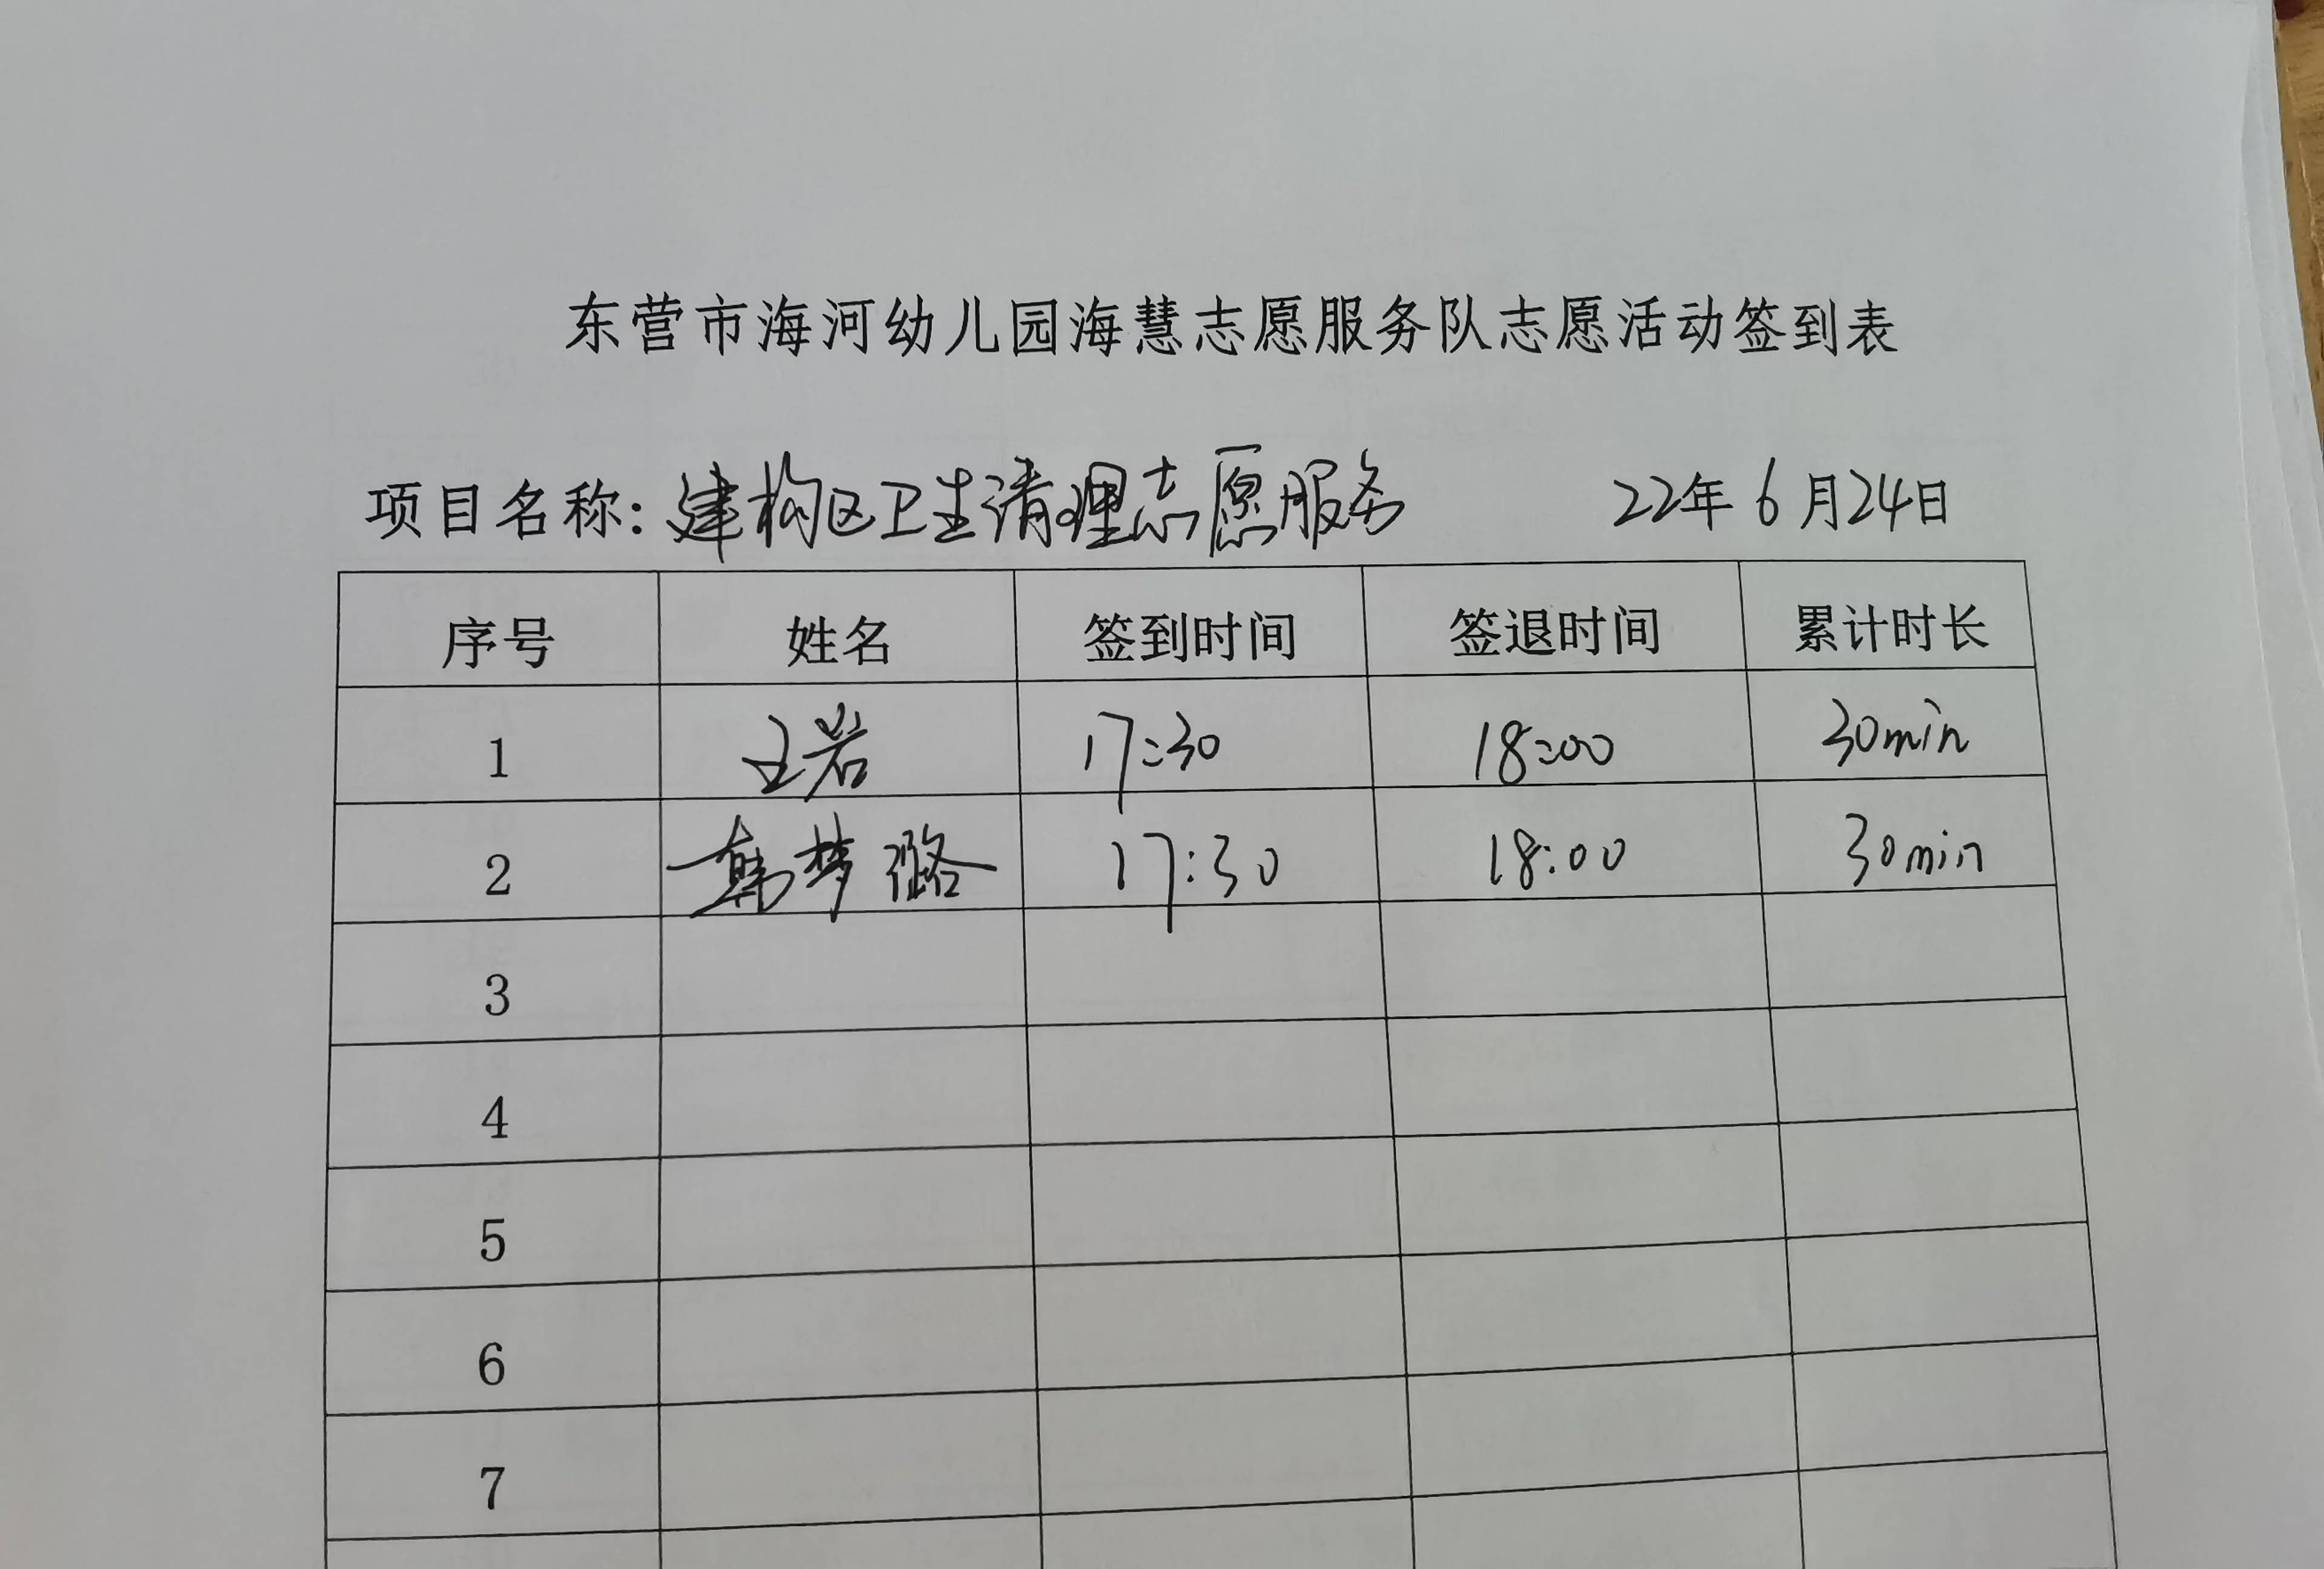 东营市海河幼儿园海慧志愿服务队志愿活动签到表
项目名称：建构区卫生清理志愿服务 22年6月24日
序号 姓名 签到时间 签退时间 累计时长
1 王岩 17:30 18:00 30min
2 韩梦璐 17:30 18:00 30min
3
4
5
6
7